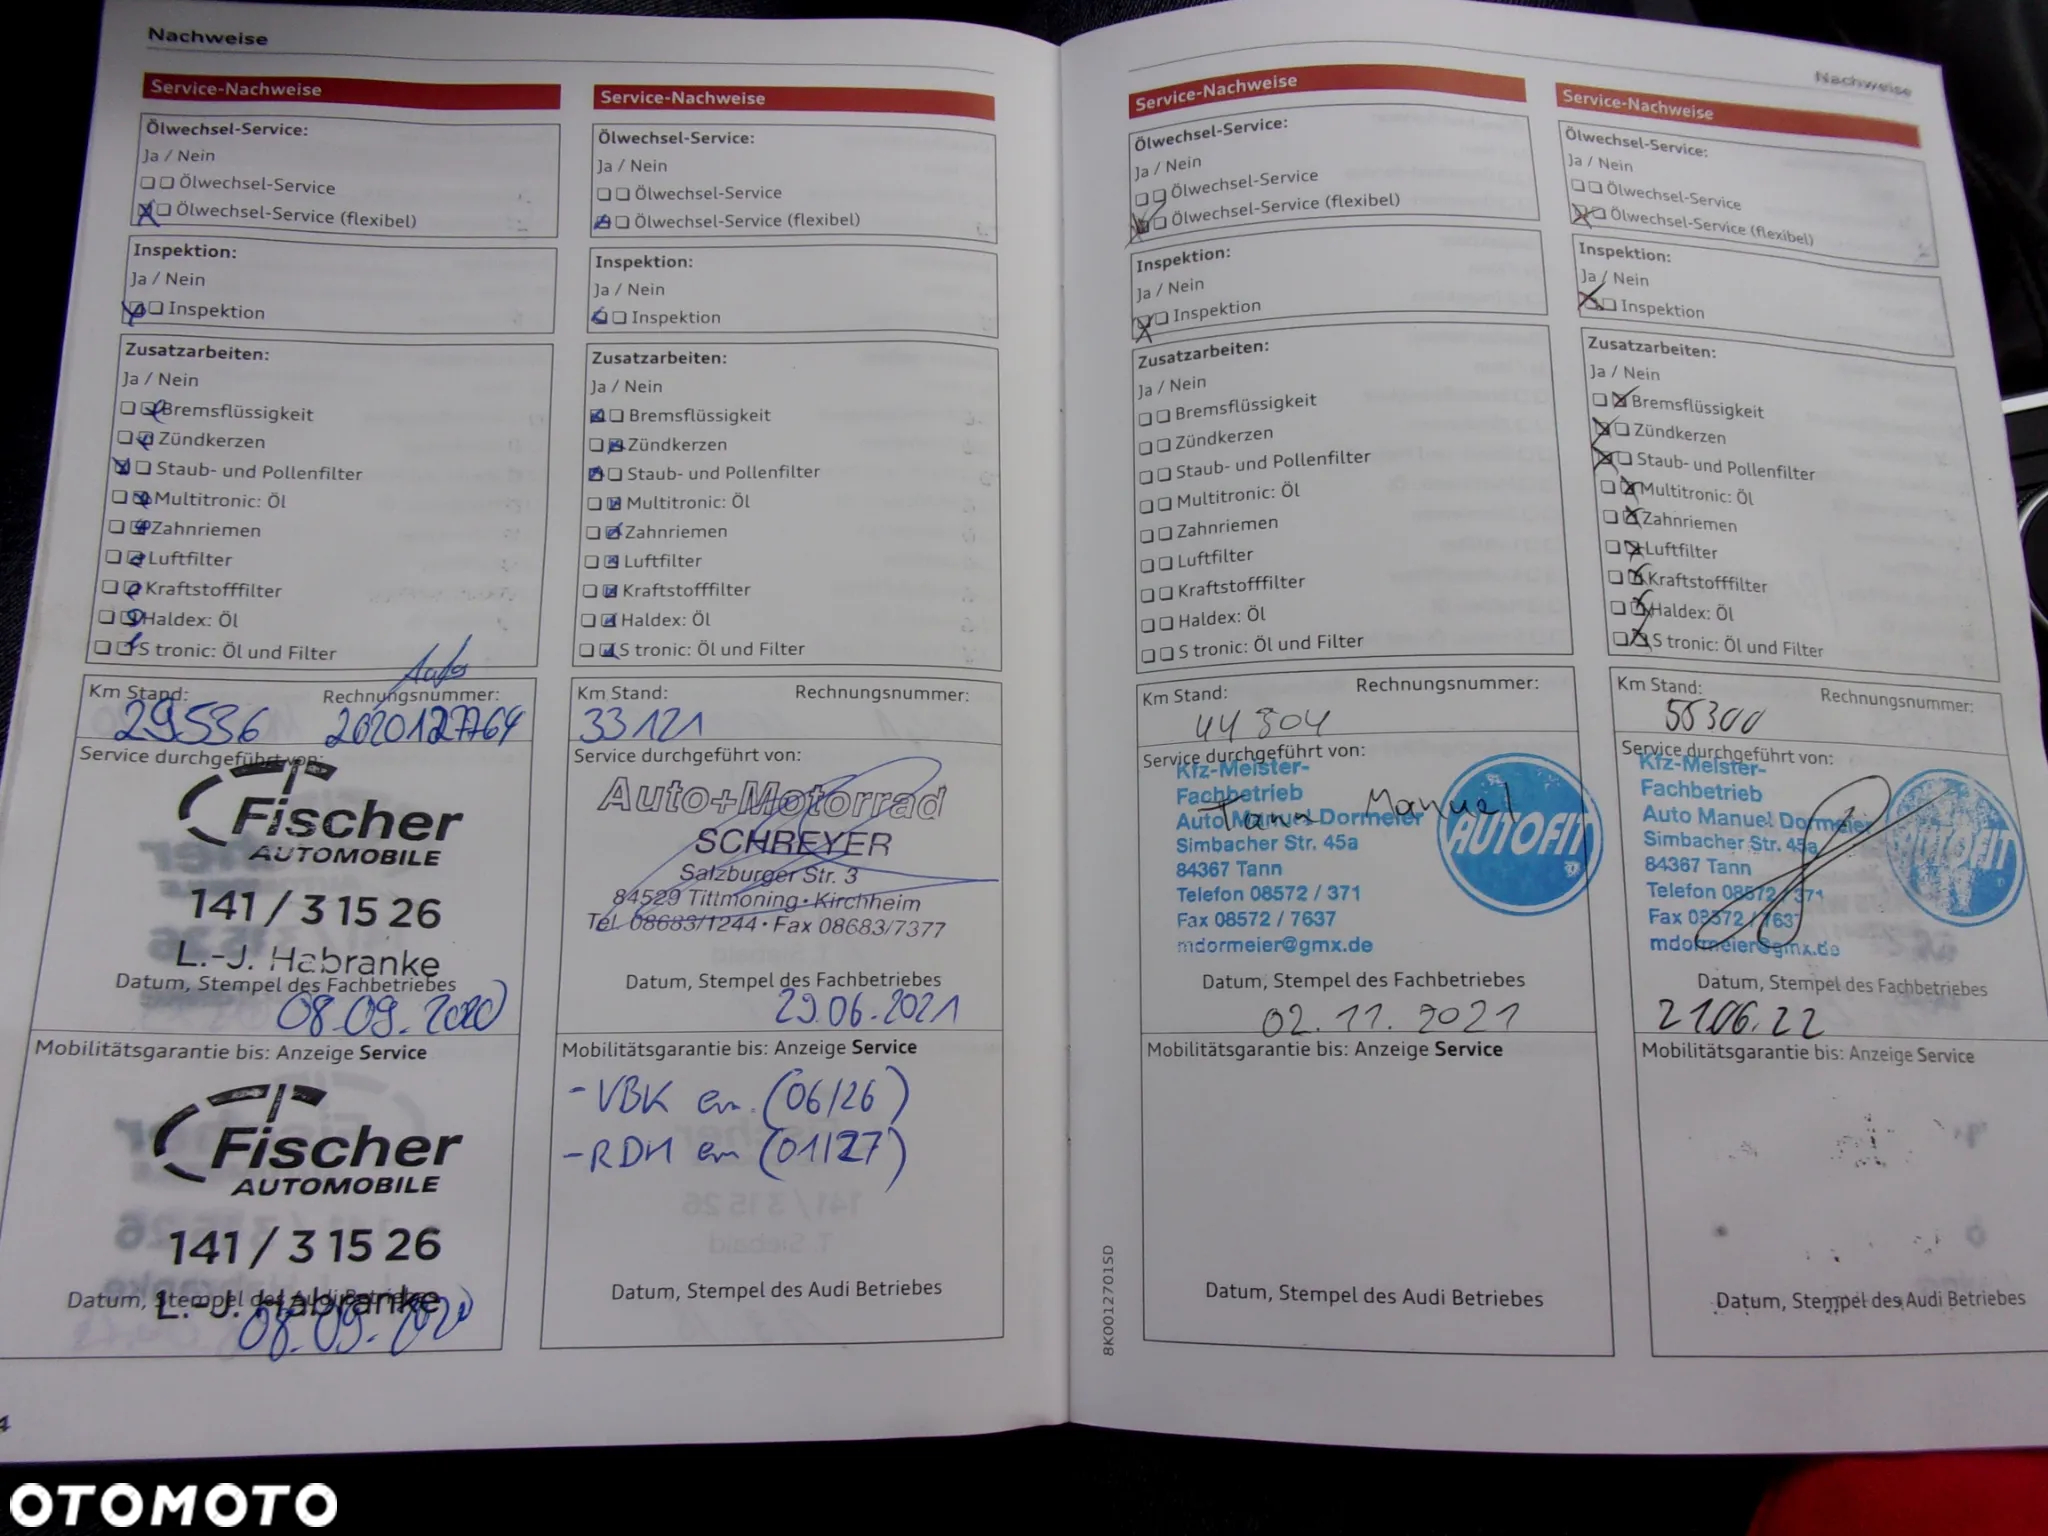 Nachweise
Service-Nachweise
Ölwechsel-Service:
Ja / Nein
Ölwechsel-Service
Ölwechsel-Service (flexibel)
Inspektion:
Ja / Nein
Inspektion
Zusatzarbeiten:
Ja / Nein
Bremsflüssigkeit
Zündkerzen
Staub- und Pollenfilter
Multitronic: Öl
Zahnriemen
Luftfilter
Kraftstofffilter
Haldex: Öl
S tronic: Öl und Filter
Km Stand: Rechnungsnummer:
29536
Service durchgeführt von:
Fischer
AUTOMOBILE
141 / 3 15 26
L.-J. Habranke
Datum, Stempel des Fachbetriebes
08.09.2020
Mobilitätsgarantie bis: Anzeige Service
Fischer
AUTOMOBILE
141 / 3 15 26
L.-J. Habranke
Datum, Stempel des Audi Betriebes
08.09.2020
Service-Nachweise
Ölwechsel-Service:
Ja / Nein
Ölwechsel-Service
Ölwechsel-Service (flexibel)
Inspektion:
Ja / Nein
Inspektion
Zusatzarbeiten:
Ja / Nein
Bremsflüssigkeit
Zündkerzen
Staub- und Pollenfilter
Multitronic: Öl
Zahnriemen
Luftfilter
Kraftstofffilter
Haldex: Öl
S tronic: Öl und Filter
Km Stand: Rechnungsnummer:
33121
Service durchgeführt von:
Auto+Motorrad
SCHREYER
Salzburger Str. 3
84529 Tittmoning • Kirchheim
Tel. 08683/1244 • Fax 08683/7377
Datum, Stempel des Fachbetriebes
29.06.2021
Mobilitätsgarantie bis: Anzeige Service
- VBK en. (06/26)
- RDM en (01/27)
Datum, Stempel des Audi Betriebes
Nachweise
Service-Nachweise
Ölwechsel-Service:
Ja / Nein
Ölwechsel-Service
Ölwechsel-Service (flexibel)
Inspektion:
Ja / Nein
Inspektion
Zusatzarbeiten:
Ja / Nein
Bremsflüssigkeit
Zündkerzen
Staub- und Pollenfilter
Multitronic: Öl
Zahnriemen
Luftfilter
Kraftstofffilter
Haldex: Öl
S tronic: Öl und Filter
Km Stand: Rechnungsnummer:
44804
Service durchgeführt von:
Kfz-Meister-
Fachbetrieb
Tann Manuel
Auto Manuel Dormeier
Simbacher Str. 45a
84367 Tann
Telefon 08572 / 371
Fax 08572 / 7637
mdormeier@gmx.de
AUTOFIT
Datum, Stempel des Fachbetriebes
02.11.2021
Mobilitätsgarantie bis: Anzeige Service
Datum, Stempel des Audi Betriebes
8K0012701SD
Service-Nachweise
Ölwechsel-Service:
Ja / Nein
Ölwechsel-Service
Ölwechsel-Service (flexibel)
Inspektion:
Ja / Nein
Inspektion
Zusatzarbeiten:
Ja / Nein
Bremsflüssigkeit
Zündkerzen
Staub- und Pollenfilter
Multitronic: Öl
Zahnriemen
Luftfilter
Kraftstofffilter
Haldex: Öl
S tronic: Öl und Filter
Km Stand: Rechnungsnummer:
55300
Service durchgeführt von:
Kfz-Meister-
Fachbetrieb
Auto Manuel Dormeier
Simbacher Str. 45a
84367 Tann
Telefon 08572 / 371
Fax 08572 / 7637
mdormeier@gmx.de
AUTOFIT
Datum, Stempel des Fachbetriebes
21.06.22
Mobilitätsgarantie bis: Anzeige Service
Datum, Stempel des Audi Betriebes
4
OTOMOTO